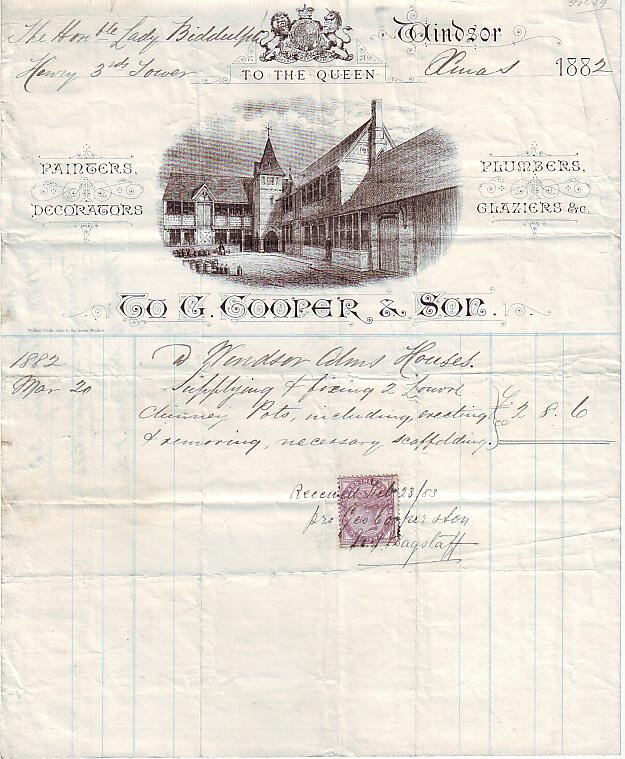 The Hon ble Lady Biddulph
Windsor
Henry 3rds Tower
TO THE QUEEN
Xmas 1882
PAINTERS,
DECORATORS
PLUMBERS,
GLAZIERS &c.
To G. COOPER & SON.
1882
@ Windsor Alms Houses.
Mar 20
Supplying & fixing 2 Louvre
Chimney Pots, including, erecting
& removing, necessary scaffolding.
2 8. 6
Received Feb 23/83
pro Geo Cooper & Son
Wagstaff